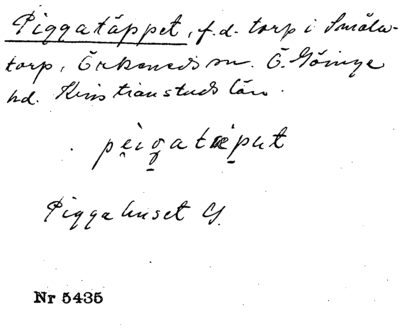 Piggatäppet, f.d. torp i Småla-
torp, Örkeneds sn. Ö. Göinge
hd. Kristianstads län.
pęigatæput
Piggahuset G.
Nr 5435